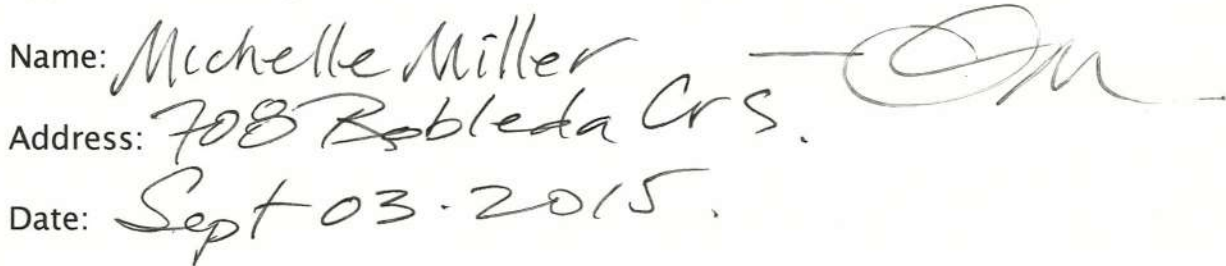 Name: Michelle Miller
Address: 708 Robleda Crs.
Date: Sept 03.2015.